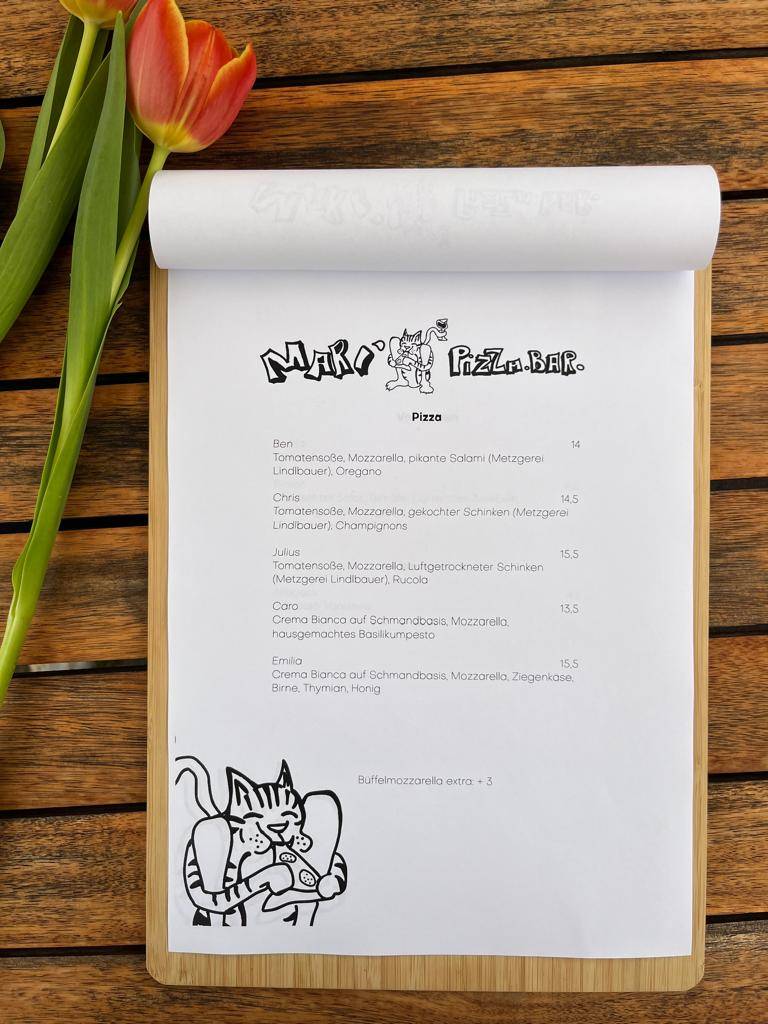 MAKI' PizzA.BAR.
Pizza
Ben 14
Tomatensoße, Mozzarella, pikante Salami (Metzgerei
Lindlbauer), Oregano
Chris 14,5
Tomatensoße, Mozzarella, gekochter Schinken (Metzgerei
Lindlbauer), Champignons
Julius 15,5
Tomatensoße, Mozzarella, Luftgetrockneter Schinken
(Metzgerei Lindlbauer), Rucola
Caro 13,5
Crema Bianca auf Schmandbasis, Mozzarella,
hausgemachtes Basilikumpesto
Emilia 15,5
Crema Bianca auf Schmandbasis, Mozzarella, Ziegenkäse,
Birne, Thymian, Honig
Büffelmozzarella extra: + 3